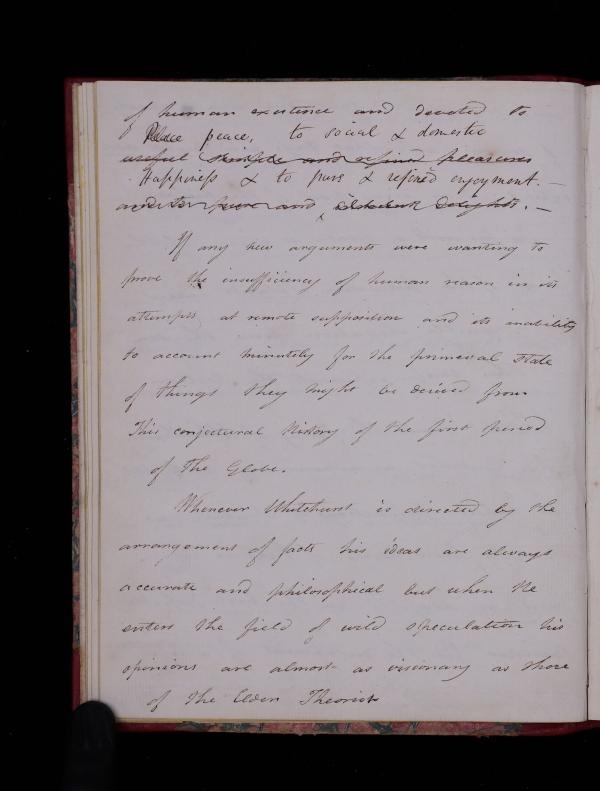 of human existence and devoted to
peace, to social & domestic
useful and refined pleasures
Happiness & to pure & refined enjoyment. —
and to pure and delights. —
If any new arguments were wanting to
prove the insufficiency of human reason in its
attempts at remote supposition and its inability
to account minutely for the primeval state
of things they might be derived from
This conjectural history of the first period
of the Globe.
Whenever Whitehurst is directed by the
arrangement of facts his ideas are always
accurate and philosophical but when he
enters the field of wild speculation his
opinions are almost as visionary as those
of the Elder Theorists